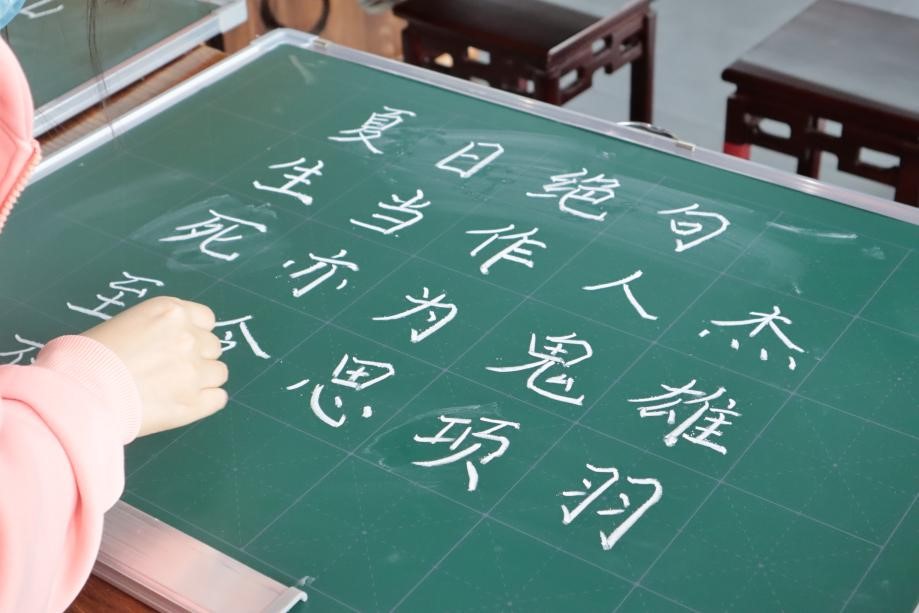 夏日绝句
生当作人杰
死亦为鬼雄
至今思项羽